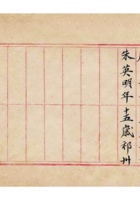 朱英明年十五歲祁州